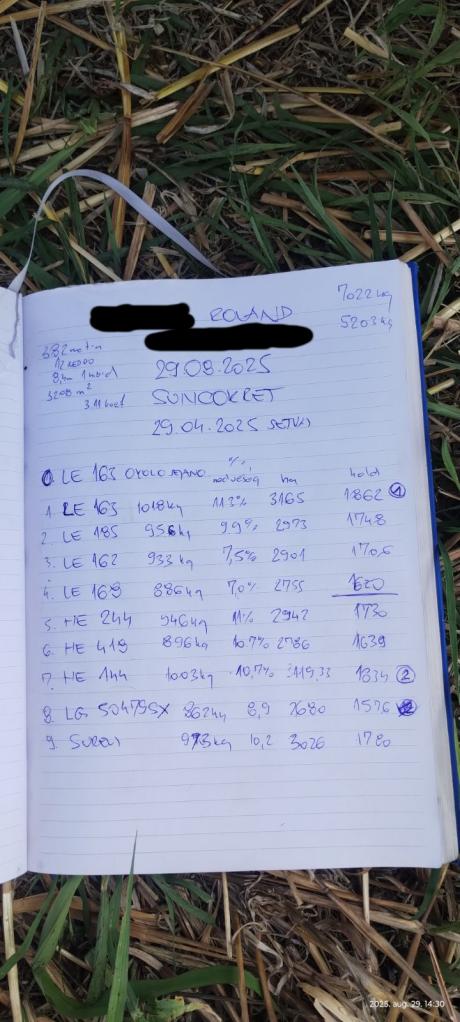 ROLAND
7022 kg
5203 kg
382 metin
12 REDOV
3208 m²
29.08.2025
SUNCOKRET
29.04.2025 SETVA
0. LE 163
% nedvesség ha hold
1. LE 163 1018kg 11.3% 3165 1862 ①
2. LE 185 956kg 9.9% 2973 1748
3. LE 162 933 kg 7,5% 2901 1706
4. LE 169 886kg 7,0% 2755 1620
5. HE 244 946kg 11% 2942 1730
6. HE 419 896kg 10.7% 2786 1639
7. HE 144 1003kg 10,7% 3119,33 1834 ②
8. LG 50479SX 862kg 8,9 2680 1576
9. SUREN 973kg 10,2 3026 1780
2025. aug. 29. 14:30